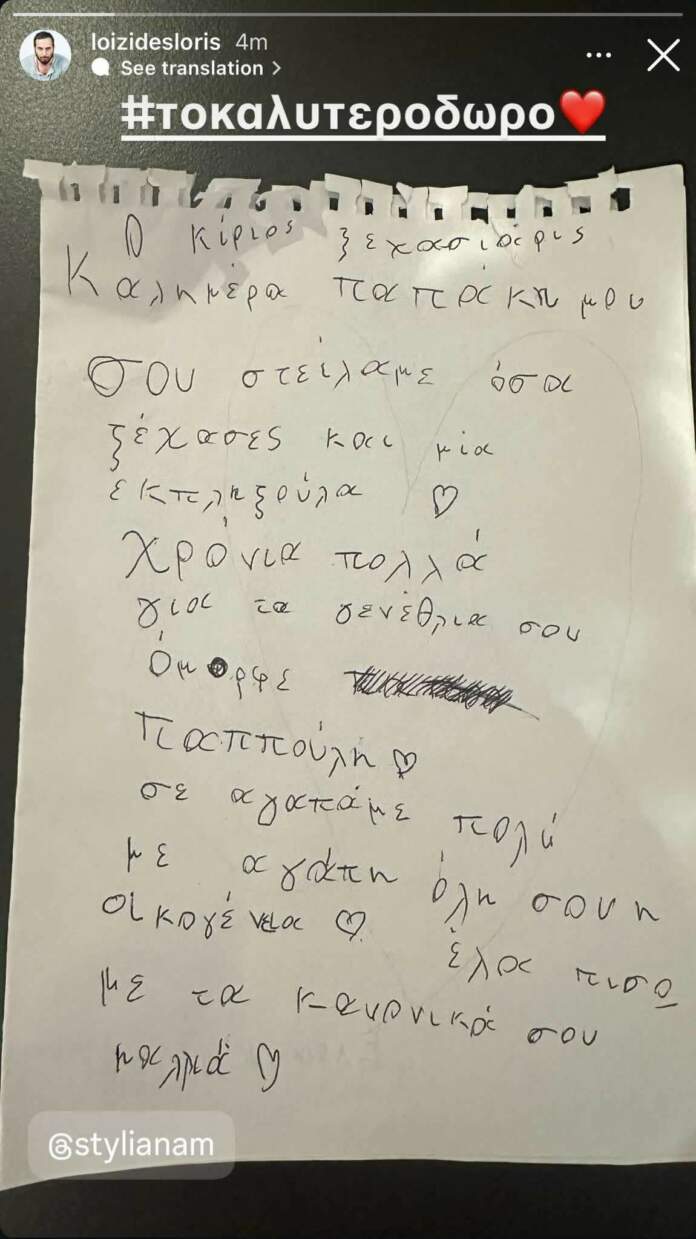 loizidesloris 4m
See translation >
#τοκαλυτεροδωρο❤️
Ο κίριος ξεχασιάρις
Καλημέρα παπράκη μου
Σου στείλαμε όσα
ξέχασες και μία
εκπληξρούλα ♡
Χρόνια πολλά
για τα γενέθλια σου
Όμορφε
παππούλη ♡
σε αγαπάμε πολύ
με αγάπη όλη σου η
οικογένεια ♡
έλα πισο
με τα κανονικά σου
μαλλιά ♡
@stylianam